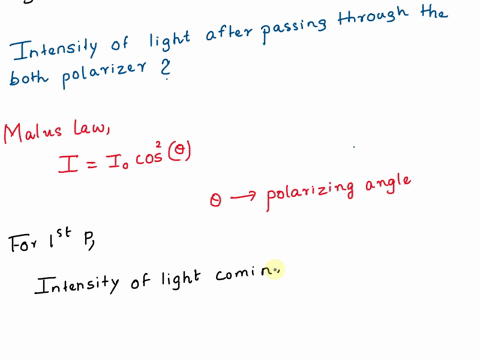 Intensity of light after passing through the
both polarizer ?
Malus law,
I = I₀ cos²(θ)
θ → polarizing angle
For 1st P,
Intensity of light comin